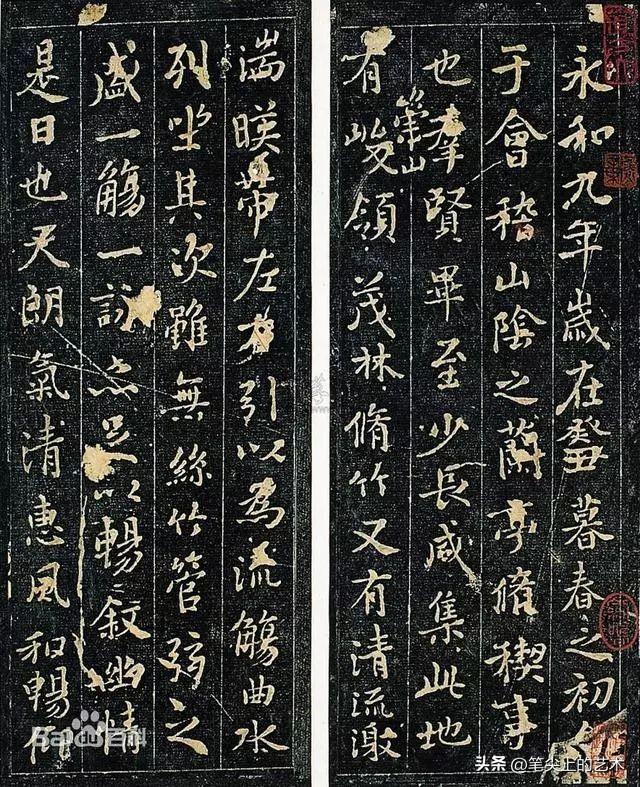 永和九年歲在癸丑暮春之初
于會稽山陰之蘭亭脩稧事
也羣賢畢至少長咸集此地
有崇山峻領茂林脩竹又有清流激
湍暎帶左右引以為流觴曲水
列坐其次雖無絲竹管弦之
盛一觴一詠亦足以暢敘幽情
是日也天朗氣清惠風和暢仰
Bai百科
头条 @笔尖上的艺术